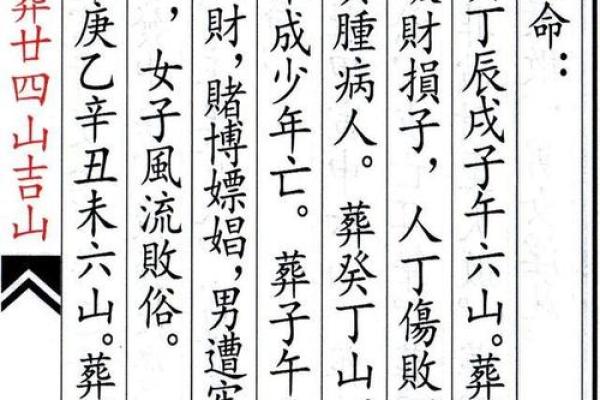 命：
丁辰戌子午六山。葬
財損子，人丁傷敗
腫病人。葬癸丁山
成少年亡。葬子午
財，賭博嫖娼，男遭
，女子風流敗俗。
庚乙辛丑未六山。葬
葬廿四山吉山